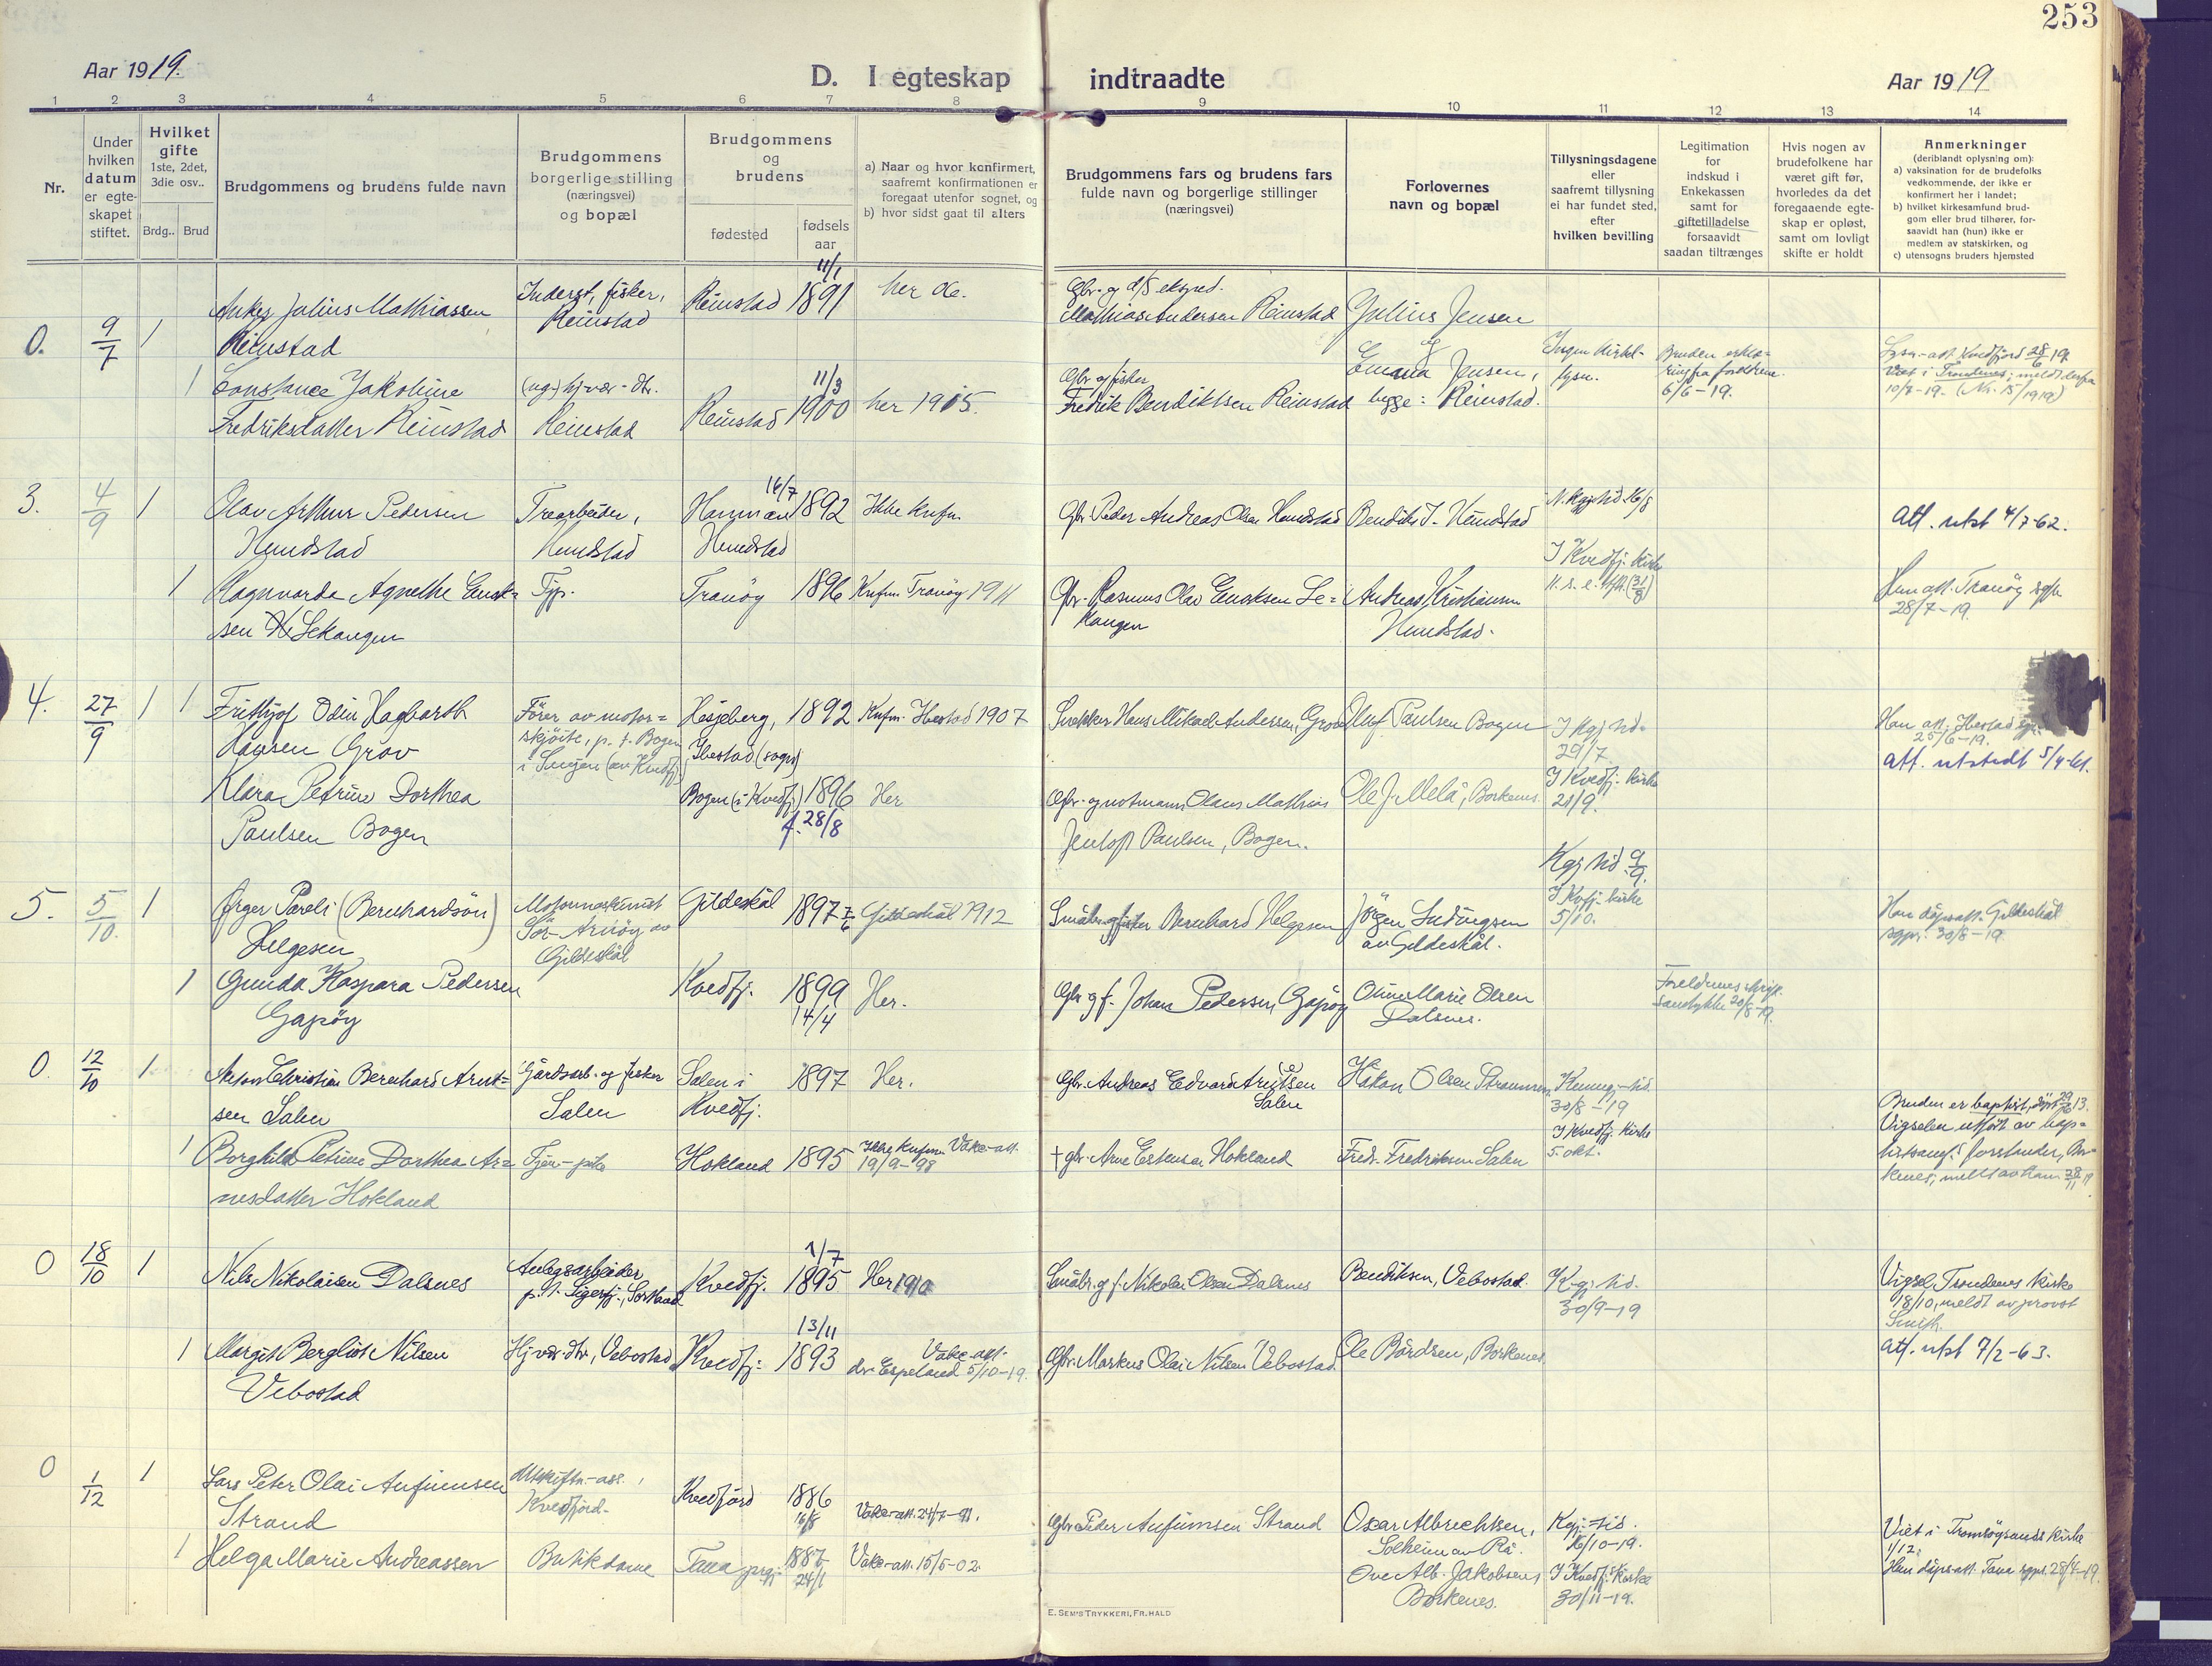 253
Aar 1919.
D. I egteskap indtraadte
Aar 1919
1 2 3 4 5 6 7 8 9 10 11 12 13 14
Nr.
Under
hvilken
datum
er egte-
skapet
stiftet.
Hvilket
gifte
1ste, 2det,
3die osv..
Brdg.. Brud
Brudgommens og brudens fulde navn
Brudgommens
borgerlige stilling
(næringsvei)
og bopæl
Brudgommens
og
brudens
fødested
fødsels
aar
a) Naar og hvor konfirmert,
saafremt konfirmationen er
foregaat utenfor sognet, og
b) hvor sidst gaat til alters
Brudgommens fars og brudens fars
fulde navn og borgerlige stillinger
(næringsvei)
Forlovernes
navn og bopæl
Tillysningsdagene
eller
saafremt tillysning
ei har fundet sted,
efter
hvilken bevilling
Legitimation
for
indskud i
Enkekassen
samt for
giftetilladelse
forsaavidt
saadan tiltrænges
Hvis nogen av
brudefolkene har
været gift før,
hvorledes da det
foregaaende egte-
skap er opløst,
samt om lovligt
skifte er holdt
Anmerkninger
(deriblandt oplysning om):
a) vaksination for de brudefolks
vedkommende, der ikke er
konfirmert her i landet;
b) hvilket kirkesamfund brud-
gom eller brud tilhører, for-
saavidt han (hun) ikke er
medlem av statskirken, og
c) utensogns bruders hjemsted
0. 9/7 1
Julius Mathiassen
Reinstad
Inderst, fisker,
Reinstad
Reinstad 11/1 1891
Gbr. og d/s eksped.
Mathias Andersen Reinstad
Julius Jensen
og
Emma Jensen,
begge: Reinstad.
1 Constance Jakobine
Fredriksdatter Reinstad
Reinstad
Reinstad 11/3 1900 her 1915.
Gbr. og fisker
Fredrik Bendiktsen Reinstad
Ingen kirkel-
lysn.
Bruden
6/6-19.
10/7-19. (Nr. 15/1919)
3. 4/9 1
Olav Arthur Pedersen
Hundstad
Trearbeider,
Hundstad
16/7 1892 Ikke knfm.
Hundstad
Gbr Peder Andreas Olsen Hundstad
Bendikt J. Hundstad
att. utst 4/7-62.
1 Ragnvarda Agnethe Enok-
sen Lekangen
Tjp.
Tranøy 1896 Knfm Tranøy 1911
Gbr. Rasmus Olai Enoksen Le-
kangen
Andreas Kristiansen
Hundstad.
I Kvedfj. kirke
Hun att. Tranøy sgp.
28/7-19.
4. 27/9 1 1
Frithjof Odin Hagbarth
Hansen Grov
Fører av motor-
skjøite, p. t. Bogen
Ibestad (sogn)
1892 Knfm. Ibestad 1907
Snekker Hans Mikael Andersen, Grov
Oluf Paulsen Bogen
29/7.
I Kvedfj. kirke
21/9.
Han att. Ibestad
25/6-19.
att. utstedt 5/4-61.
Klara Petrine Dorthea
Paulsen Bogen
Bogen (i Kvedfj) 1896 Her
f. 28/8
Gbr. og notmann Olaus Mathias
Jentoft Paulsen, Bogen.
Ole J. Melå, Borkenes.
5. 5/10. 1
Ørger Pareli (Bernhardsøn)
Helgesen
Sør-Arnøy av
Gildeskål
Gildeskål 1897 Gildeskål 1912
Småbr. og fisker Bernhard Helgesen
Jørgen Ludvigsen
av Gildeskål.
I Kvfj. kirke
5/10.
Han dåpsatt. Gildeskål
sgpr. 30/8-19.
1 Gunda Kaspara Pedersen
Gapøy
Kvedfj. 1899
14/4
Her.
Gbr og f. Johan Pedersen, Gapøy
Oline Marie Olsen
Dalsnes.
0. 12/10 1
Anton Christian Bernhard Arnt-
sen Salen
Gårdsarb. og fisker
Salen
Salen i
Kvedfj.
1897 Her.
Gbr. Andreas Edvard Arntsen
Salen
Håkon Olsen Straumen
30/8-19
I Kvedfj. kirke
5. okt.
1 Borghild Petrine Dorthea Ar-
nesdatter Hokland
Tjen.-pike
Hokland 1895 Ikke knfm. Vakc-att.
19/9-98
† gbr. Arne Estensen Hokland
Fredr. Fredriksen Salen
Bruden er baptist,
Vigselen utført av bap-
tistsamf.s forstander,
0 18/10 1
Nils Nikolaisen Dalsnes
Anlegsarbeider
p. t. Sigerfj., Sortland
Kvedfj. 1/7 1895 Her 1910
Småbr. og f. Nikolai Olsen Dalsnes
Bendiksen, Vebostad.
30/9-19
Vigsel, Trondenes kirke
18/10, meldt av provst
att. utst 7/2-63.
1 Margit Bergliot Nilsen
Vebostad
Hj vær. dtr., Vebostad
Kvedfj. 13/11 1893
Vakc-att.
dr. Espeland 5/10-19.
Gbr. Markus Olai Nilsen Vebostad.
Ole Bårdsen, Borkenes
0 1/12 1
Lars Peter Olai Anfinnsen
Strand
Utskiftn.-ass.,
Kvedfjord.
Kvedfjord 1886
16/8
Vakc-att. 24/7-91.
Gbr. Peder Anfinnsen Strand
Oscar Albrechtsen,
Solheim av Rå.
26/10-19.
Viet i Tromsøysunds kirke
1/12.
1 Helga Marie Andreassen
Butikdame
Tana 1887
24/1
Vakc-att. 15/5-02.
Ove Alb. Jakobsens
Borkenes.
I Kvedfj. kirke
30/11-19.
Hun dåpsatt. Tana sgpr. 28/4-19.
E. SEM'S TRYKKERI, FR. HALD